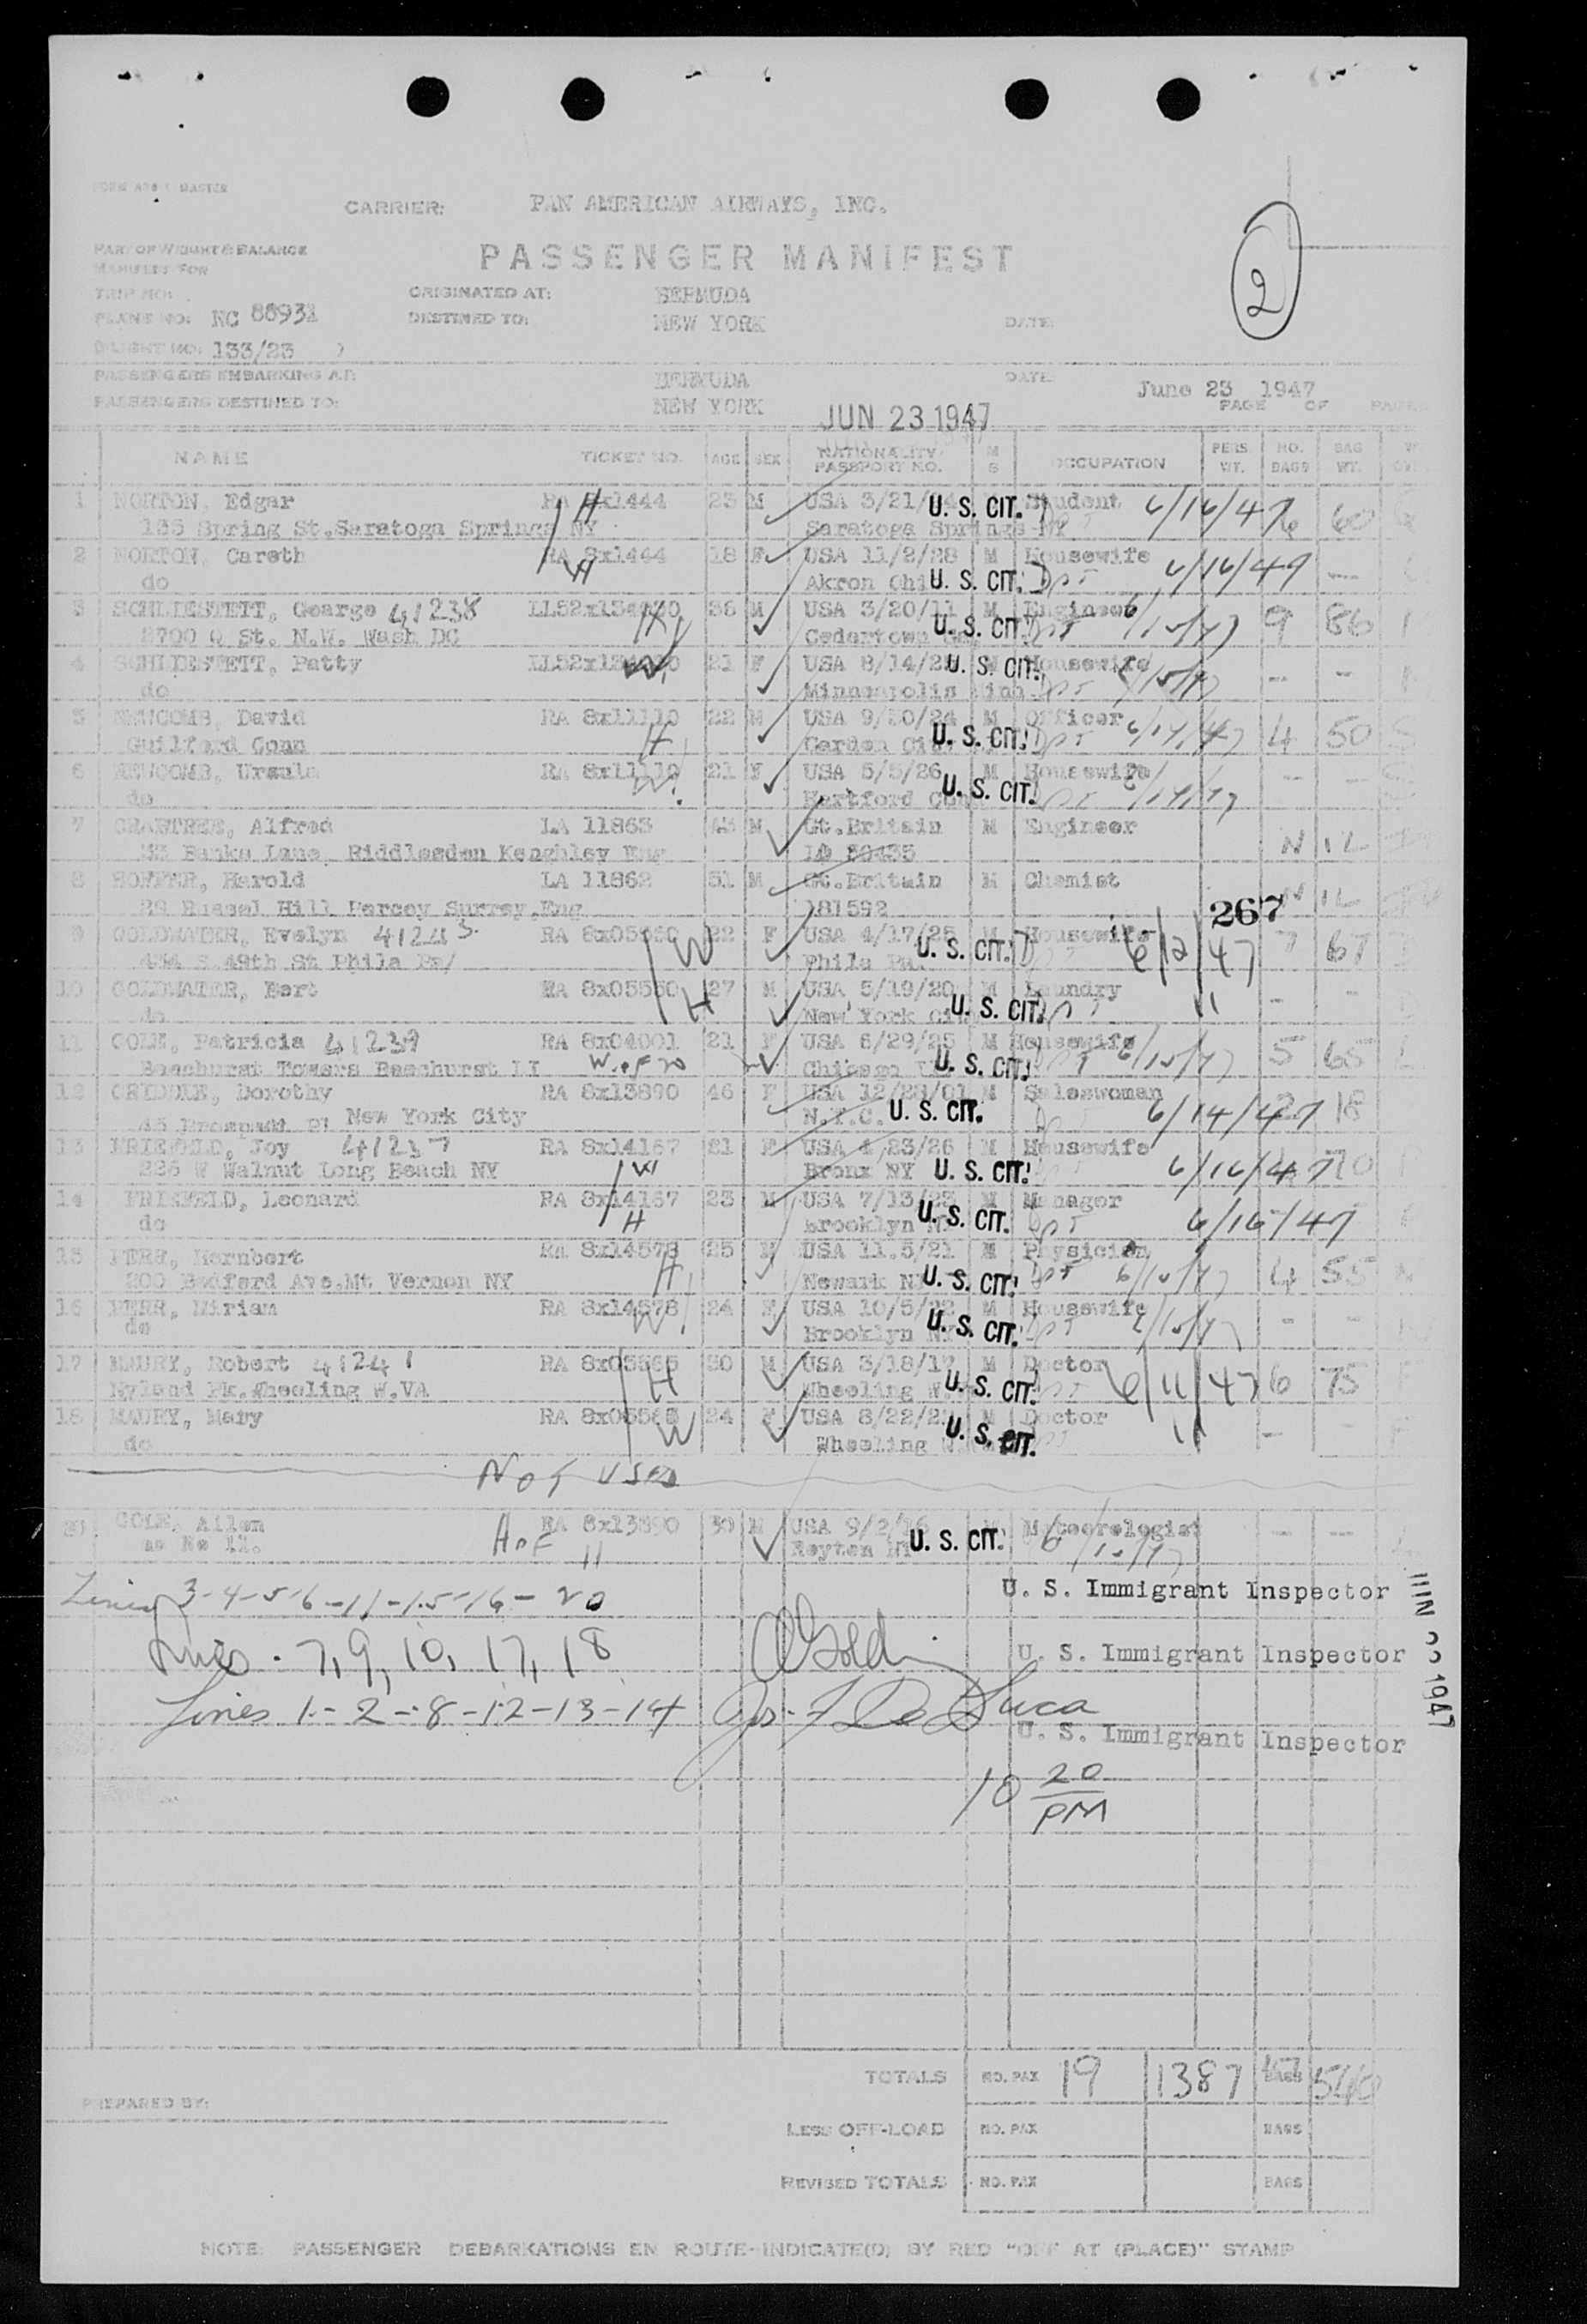 FORM MASTER
CARRIER: PAN AMERICAN AIRWAYS, INC.
PART OF WEIGHT & BALANCE
MANIFEST FOR
PASSENGER MANIFEST
2
TRIP NO:
ORIGINATED AT: BERMUDA
PLANE NO: NC 88931
DESTINED TO: NEW YORK
DATE:
(FLIGHT NO: 133/23 )
PASSENGERS EMBARKING AT: BERMUDA
DATE June 23 1947
PASSENGERS DESTINED TO: NEW YORK
JUN 23 1947
PAGE OF PAGES
NAME TICKET NO. AGE SEX NATIONALITY PASSPORT NO. M S OCCUPATION PERS. WT. NO. BAGS BAG WT.
1 NORTON, Edgar RA 8x1444 H 23 M USA 3/21/ U. S. CIT. Student 6/16/47 60
Spring St. Saratoga Springs NY Saratoga Springs NY
2 NORTON, Careth RA 8x1444 W 18 F USA 11/2/28 M Housewife 6/16/47 —
do Akron Ohi U. S. CIT. Dpt
3 George 41238 36 M USA 3/20/11 M Engineer 6/15/47 9 86
3700 Q St. N.W. Wash DC H Cedartown U. S. CIT. Dpt
4 Patty W 21 F USA 8/14/2 U. S. CIT. Housewife 6/15/47 -- --
do Minneapolis Minn Dpt
5 NEWCOMB, David RA 8x11110 22 M USA 9/30/24 M Officer 6/14/47 4 50
Guilford Conn H Garden Cit U. S. CIT. Dpt
6 NEWCOMB, Ursula RA 8x11110 21 F USA 5/5/26 M Housewife 6/14/47 -- --
do W Hartford Con U. S. CIT. Dpt
7 CRABTREE, Alfred LA 11863 43 M Gt.Britain M Engineer
33 Banks Lane, Riddlesden Keaghley Eng N IL
8 Harold LA 11862 31 M Gt.Britain M Chemist
29 Russel Hill Surrey, Eng 181592 267 N IL
9 GOLDWATER, Evelyn 41243 W 22 F USA 4/17/25 M Housewife 6/12/47 7 67
S. 49th St Phila Pa/ Phila Pa. U. S. CIT. Dpt
10 GOLDWATER, Bert RA 8x05550 H 27 M USA 5/19/20 M Laundry " - -
do New York Cit U. S. CIT. Dpt
11 COLE, Patricia 41239 RA 8x04001 21 F USA 6/29/25 M Housewife 6/15/47 5 65
Beechurst Towers Beechurst LI W. of 20 Chicago U. S. CIT. Dpt
12 CRIDDLE, Dorothy RA 8x13890 46 F USA 12/28/01 M Saleswoman 6/14/47 18
45 Prospect Pl New York City N.Y.C. U. S. CIT.
13 FRIEFELD, Joy 41237 RA 8x14167 21 F USA 4/23/26 M Housewife
226 W Walnut Long Beach NY W Bronx NY U. S. CIT. 6/16/47
14 FRIEFELD, Leonard RA 8x14167 23 M USA 7/13/23 M Manager
do H Brooklyn U. S. CIT. Dpt 6/16/47
15 25 M USA 11.5/21 M Physician
200 Bedford Ave. Mt Vernon NY H Newark N U. S. CIT. Dpt 6/15/47 4 55
16 Miriam RA 8x14578 24 F USA 10/5/22 M Housewife
do W Brooklyn NY U. S. CIT. Dpt 6/15/47 - -
17 MAURY, Robert 41241 RA 8x05565 30 M USA 3/18/17 M Doctor 6/11/47 6 75
Hyland Pk. Wheeling W.VA H Wheeling W. U. S. CIT. Dpt
18 MAURY, Mary RA 8x05565 24 F USA 8/22/2 M Doctor
do W Wheeling U. S. CIT. " - -
NOT USED
20 COLE, Allen RA 8x13890 30 M USA 9/2/16 Meteorologist -- --
as No 11. H of 11 U. S. CIT. 6/15/47
Lines 3-4-5-6-11-15-16-20 U. S. Immigrant Inspector
Lines . 7, 9, 10, 17, 18 U. S. Immigrant Inspector
Lines 1-2-8-12-13-14 Jos. F De Luca
U. S. Immigrant Inspector
1947
10 20 PM
TOTALS NO. PAX 19 1387 BAGS 540
PREPARED BY:
LESS OFF-LOAD NO. PAX BAGS
REVISED TOTALS NO. PAX BAGS
NOTE: PASSENGER DEBARKATIONS EN ROUTE-INDICATE(D) BY RED "OFF AT (PLACE)" STAMP